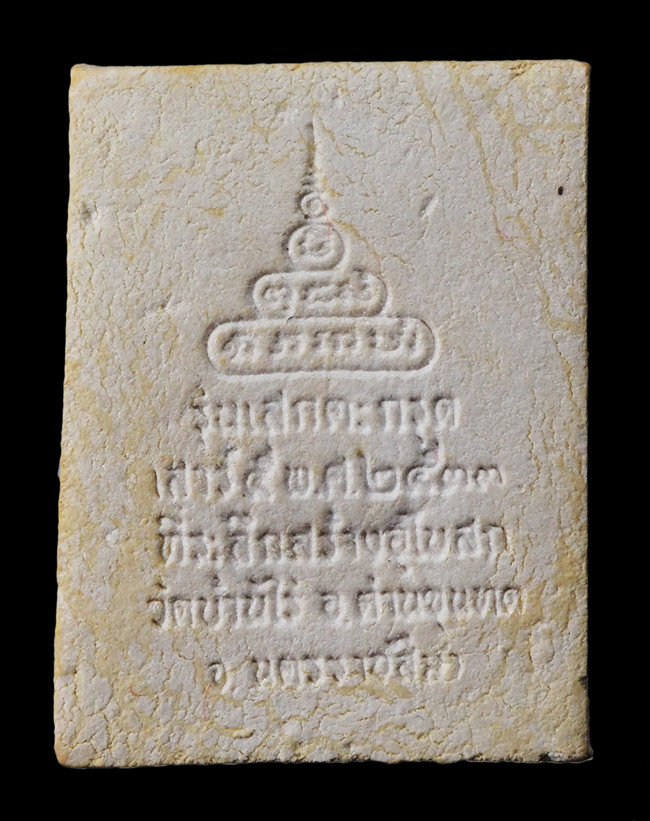 รุ่นเสกตะกรุด
เสาร์ ๕ พ.ศ.๒๕๓๓
ที่ระลึกสร้างอุโบสถ
วัดบ้านไร่ อ.ด่านขุนทด
จ.นครราชสีมา